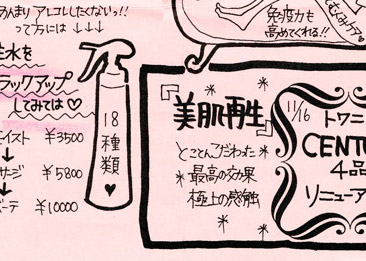 あんまりアレコレしたくないっ!!
って方には↓↓↓
生水を
ラックアップ
してみては♡
¥3500
↓
サージ ¥5800
↓
¥10000
18種類♥
免疫力も
高めてくれる!!
美肌再生
とことんこだわった
最高の効果
極上の感触
11/16
トワニ
CENTU
4品
リニューア